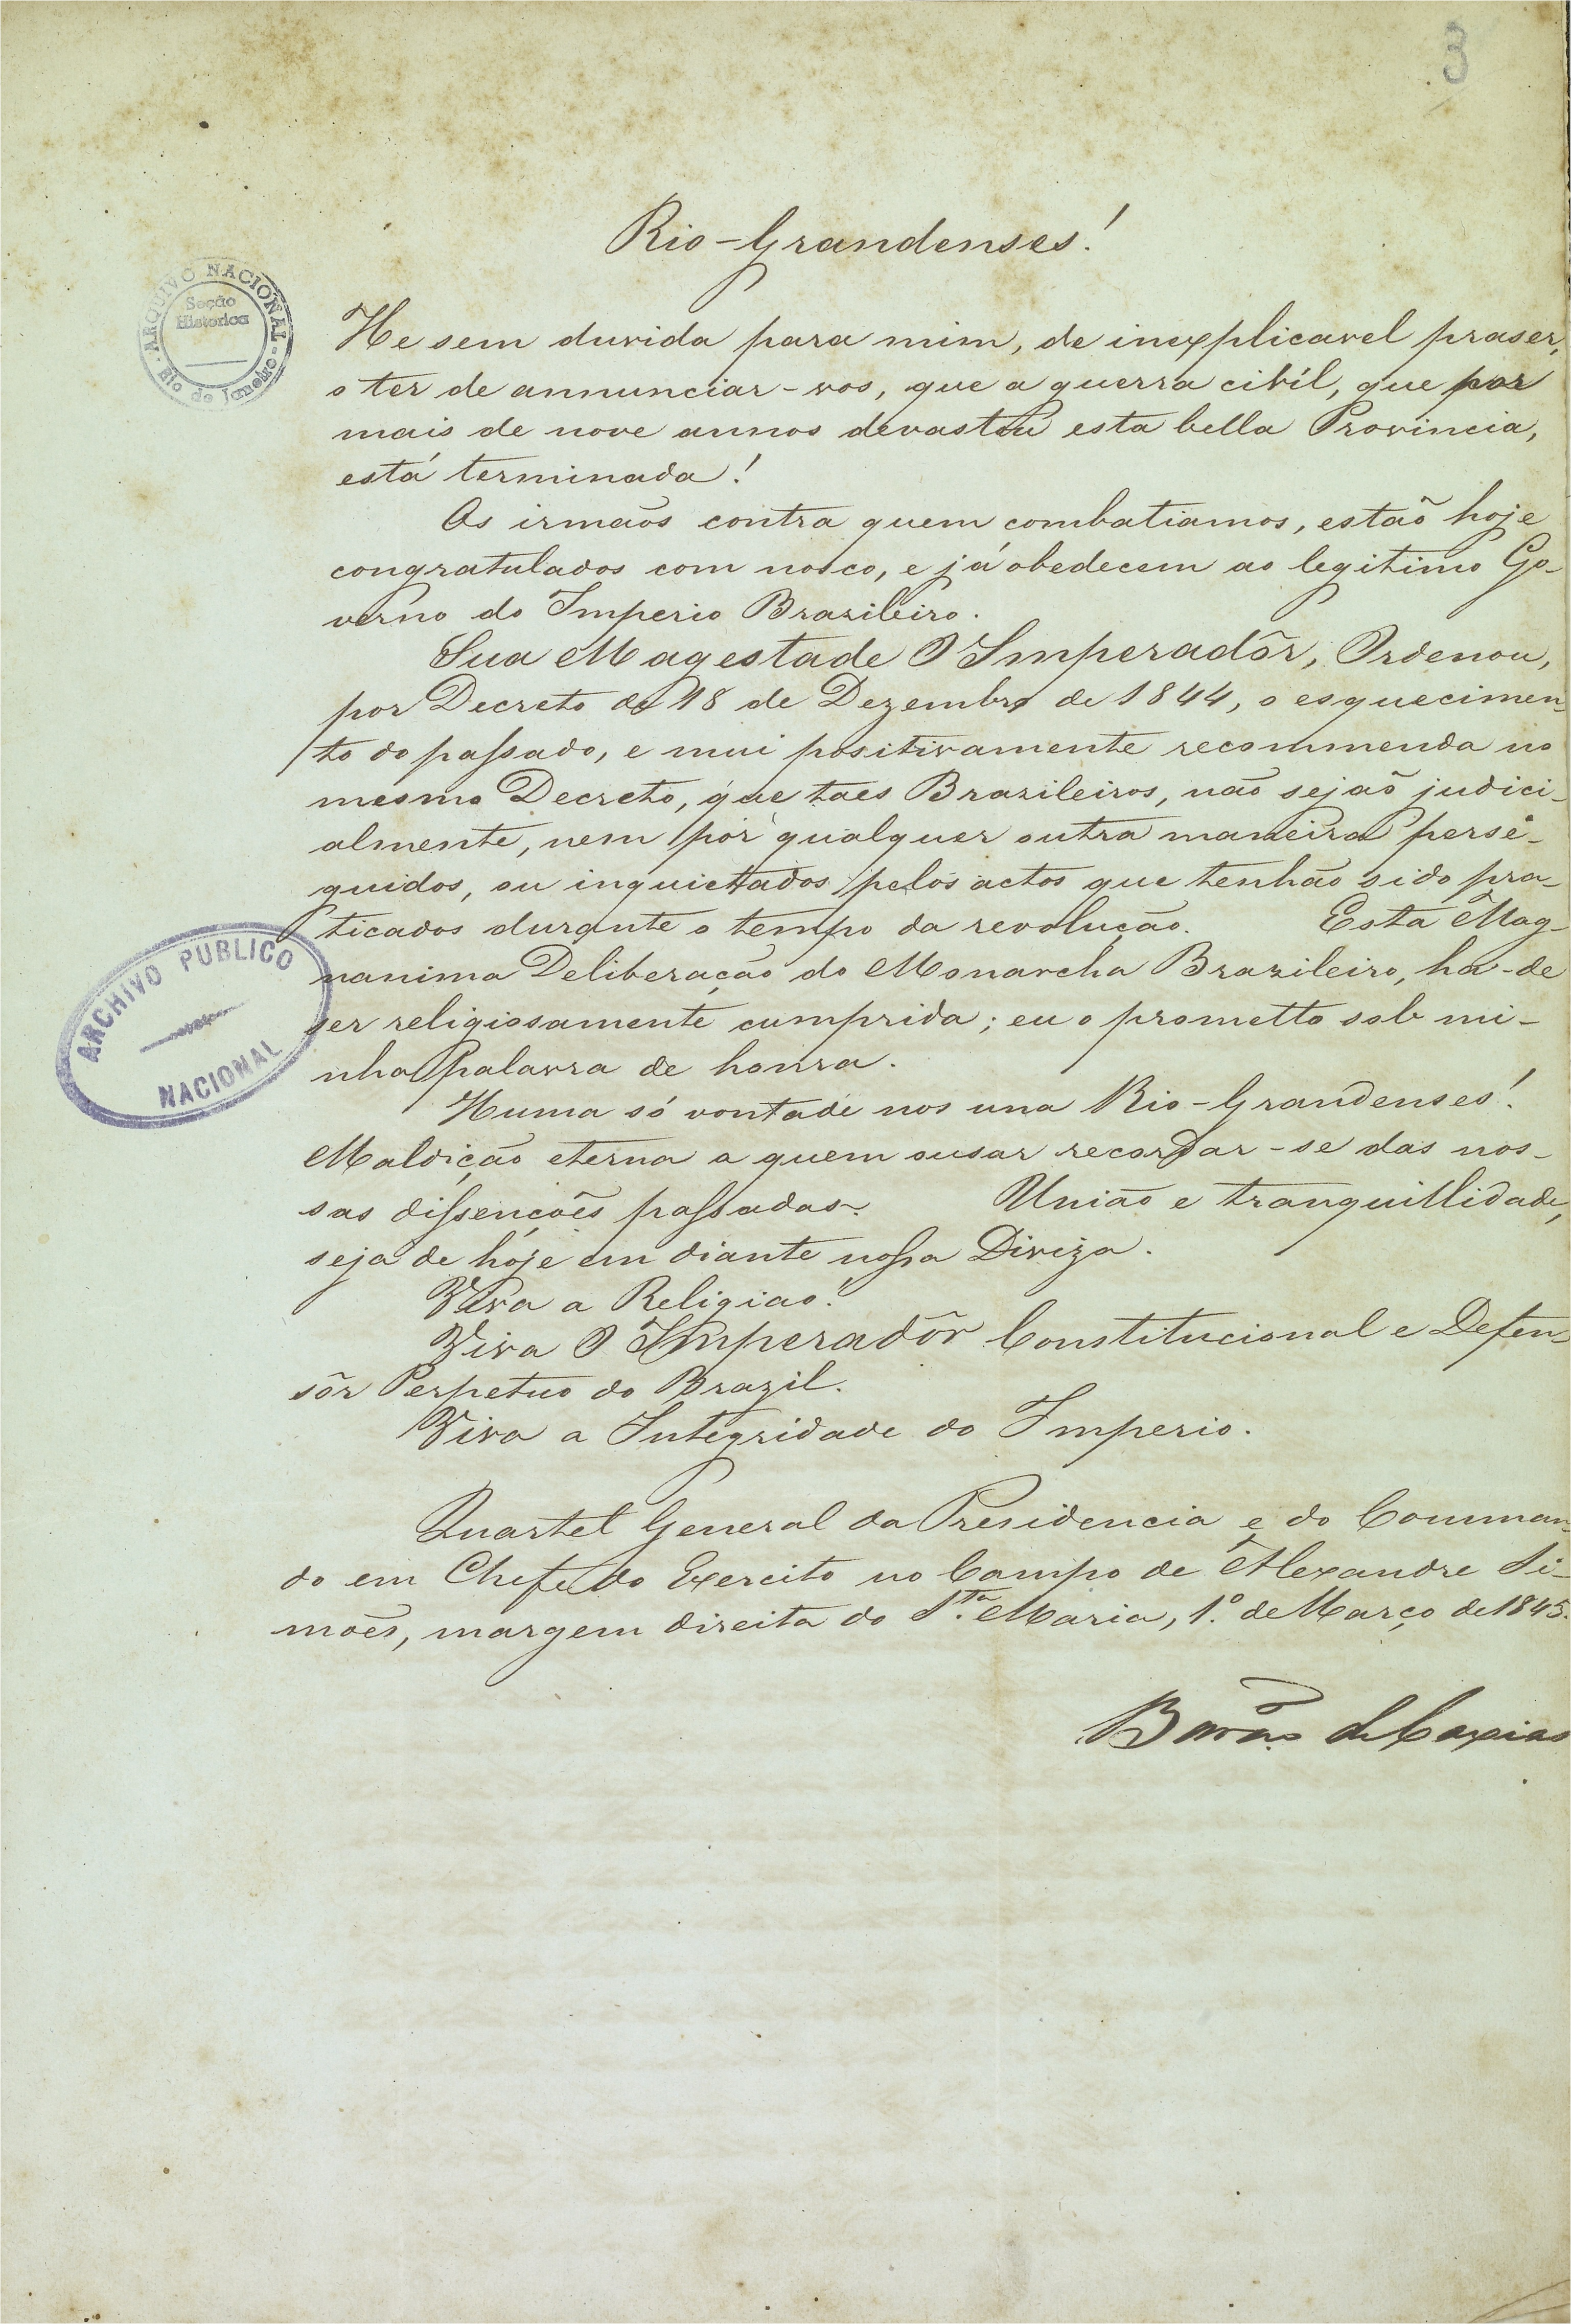 3
Rio-Grandenses!
ARQUIVO NACIONAL - Rio de Janeiro -
Seção
Historica
He sem duvida para mim, de inexplicavel praser,
o ter de annunciar-vos, que a guerra civíl, que por
mais de nove annos devastou esta bella Provincia,
está terminada!
Os irmãos contra quem combatiamos, estaõ hoje
congratulados com nosco, e já obedecem ao legitimo Go-
verno do Imperio Brazileiro.
Sua Magestade O Imperadôr, Ordenou,
por Decreto de 18 de Dezembro de 1844, o esquecimen-
to do passado, e mui positivamente recommenda no
mesmo Decreto, que taes Brazileiros, não sejaõ judici-
almente, nem por qualquer outra maneira perse-
guidos, ou inquietados pelos actos que tenhão sido pra-
ticados durante o tempo da revolução. Esta Mag-
nanima Deliberação do Monarcha Brazileiro, ha-de
ser religiosamente cumprida; eu o prometto sob mi-
nha palavra de honra.
ARCHIVO PUBLICO
NACIONAL
Huma só vontade nos una Rio-Grandenses!
Maldição eterna a quem ousar recordar-se das nos-
sas dissençoẽs passadas. União e tranquillidade,
seja de hoje em diante nossa Diviza.
Viva a Religiao!
Viva O Imperadôr Constitucional e Defen-
sôr Perpetuo do Brazil.
Viva a Integridade do Imperio.
Quartel General da Presidencia e do Comman-
do em Chefe do Exercito no Campo de Alexandre Si-
moẽs, margem direita do S.ta Maria, 1.º de Março de 1845.
Barão de Caxias